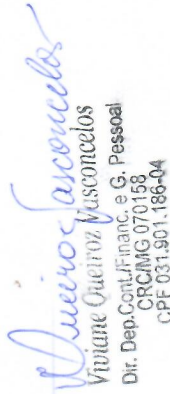 Queiroz Vasconcelos
Viviane Queiroz Vasconcelos
Dir. Dep.Cont./Financ. e G. Pessoal
CRC/MG 070158
CPF 031.901.186-04